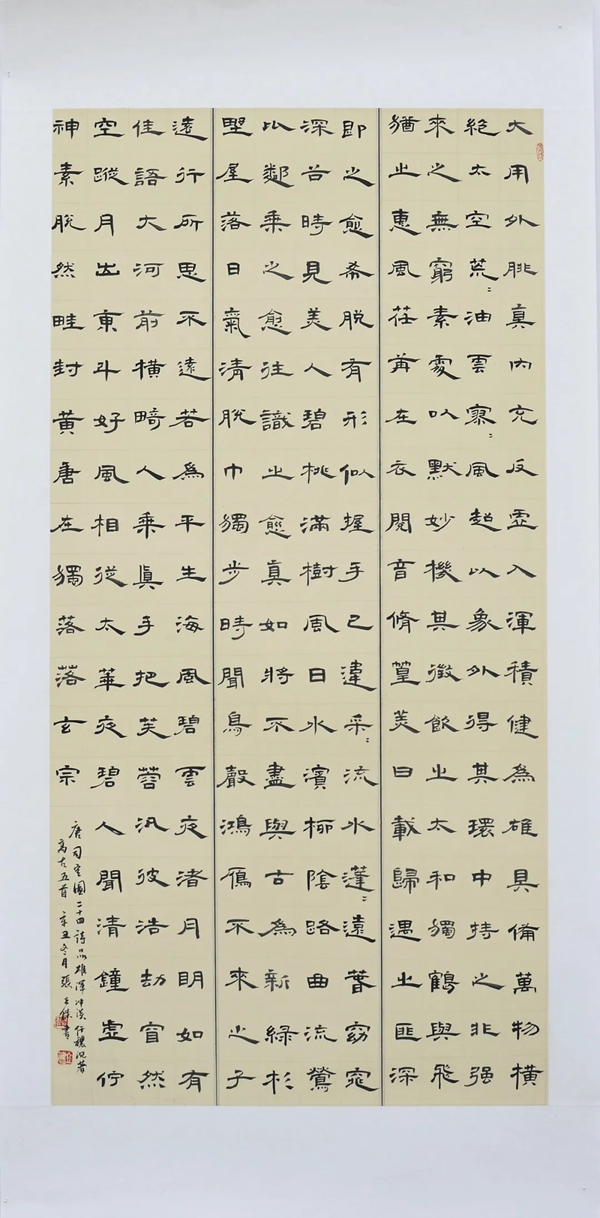 大用外腓真內充反虛入渾積健為雄具備萬物橫
絕太空荒〻油雲寥〻風超以象外得其環中持之非强
來之無窮素處以默妙機其微飲之太和獨鶴與飛
猶之惠風荏苒在衣閱音脩篁美曰載歸遇之匪深
即之愈希脫有形似握手已違采〻流水蓬〻遠春窈窕
深谷時見美人碧桃滿樹風日水濱柳陰路曲流鶯
比鄰乘之愈往識之愈真如將不盡與古為新綠杉
野屋落日氣清脫巾獨步時聞鳥聲鴻雁不來之子
遠行所思不遠若為平生海風碧雲夜渚月明如有
佳語大河前橫畸人乘真手把芙蓉汎彼浩劫窅然
空蹤月出東斗好風相從太華夜碧人聞清鐘虛佇
神素脫然畦封黃唐在獨落落玄宗
唐司空圖二十四詩品雄渾沖淡纖穠沈著
高古五首辛丑冬月張書